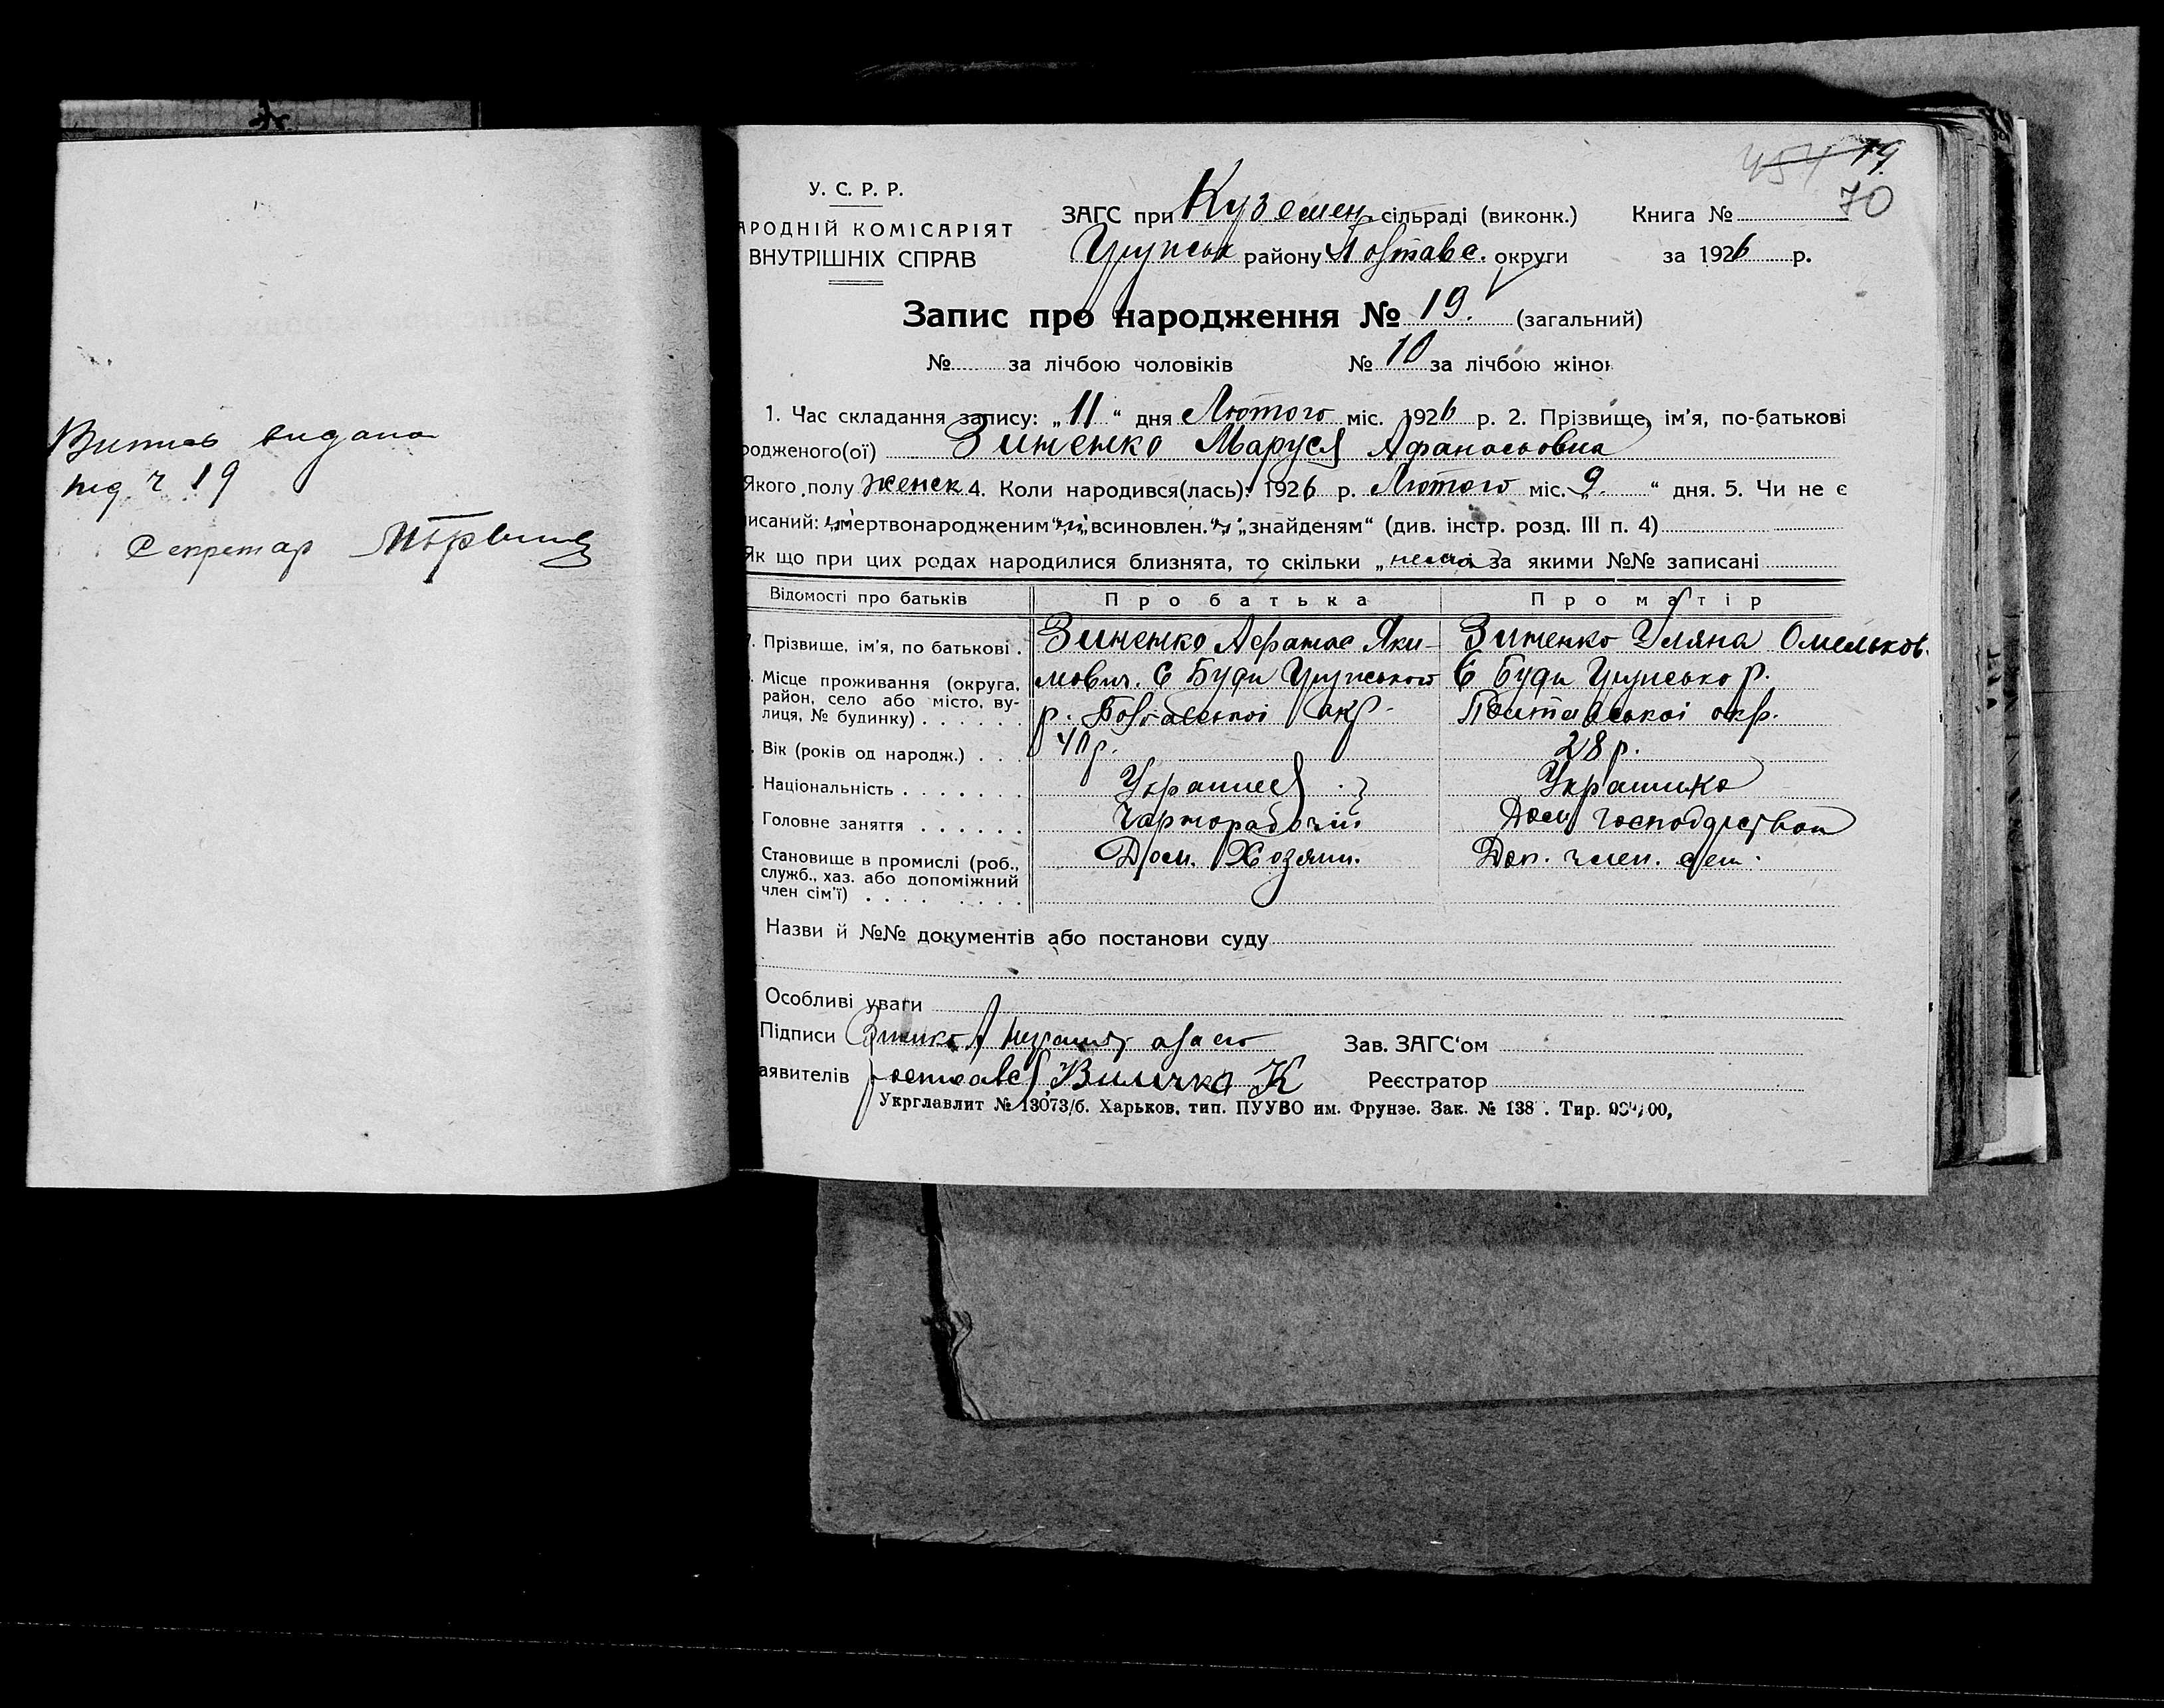 Випись видана
під ч 19
Секретар
19
70
У. С. Р. Р.
АРОДНІЙ КОМІСАРІЯТ
ВНУТРІШНІХ СПРАВ
ЗАГС при Куземен. сільраді (виконк.)
району Полтавс. округи
Книга №
за 1926 р.
Запис про народження № 19. (загальний)
№ за лічбою чоловіків № 10 за лічбою жінок
1. Час складання запису: „11“ дня Лютого міс. 1926 р. 2. Прізвище, ім'я, по-батькові
родженого(ої) Зиненко Маруся Афанасьовна
Якого полу женск 4. Коли народився(лась): 1926 р. Лютого міс. „9.“ дня. 5. Чи не є
исаний: „мертвонародженим“ „всиновлен.“ „знайденям“ (див. інстр. розд. III п. 4)
Як що при цих родах народилися близнята, то скільки „немає за якими №№ записані
Відомості про батьків Про батька Про матір
Прізвище, ім'я, по батькові . Зиненко Афанас Яки- Зиненко Уляна Омельков.
Місце проживання (округа, район, село або місто, вулиця, № будинку) . . . . . . мович. С Буди С Буди
р. окр. Полтавської окр.
Вік (років од народж.) . . . 40 р. 28 р.
Національність . . . . . . . Украинец Украинка
Головне заняття . . . . . . Чорнорабочий Дом господарством
Становище в промислі (роб., служб., хаз. або допоміжний член сім'ї) . . . . . . . . Дом. Хозяин. Доп. член. сем.
Назви й №№ документів або постанови суду
Особливі уваги
Підписи Зиненко А неграмот. а за его
аявителів Величко К
Зав. ЗАГС'ом
Реєстратор
Укрглавлит № 13073/б. Харьков, тип. ПУУВО им. Фрунзе. Зак. № 138 . Тир.